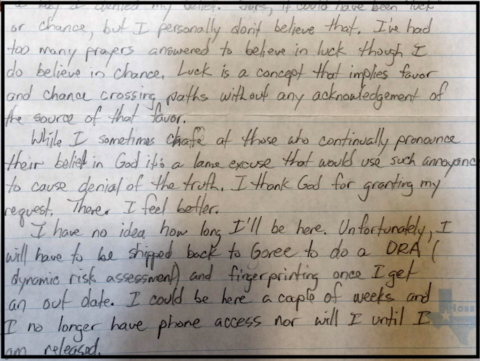 may be denied my belief. Sure, it could have been luck
or chance, but I personally don't believe that. I've had
too many prayers answered to believe in luck though I
do believe in chance. Luck is a concept that implies favor
and chance crossing paths without any acknowledgement of
the source of that favor.
While I sometimes chafe at those who continually pronounce
their belief in God it's a lame excuse that would use such annoyance
to cause denial of the truth. I thank God for granting my
request. There. I feel better.
I have no idea how long I'll be here. Unfortunately, I
will have to be shipped back to Goree to do a DRA (
dynamic risk assessment) and fingerprinting once I get
an out date. I could be here a couple of weeks and
I no longer have phone access nor will I until I
am released.